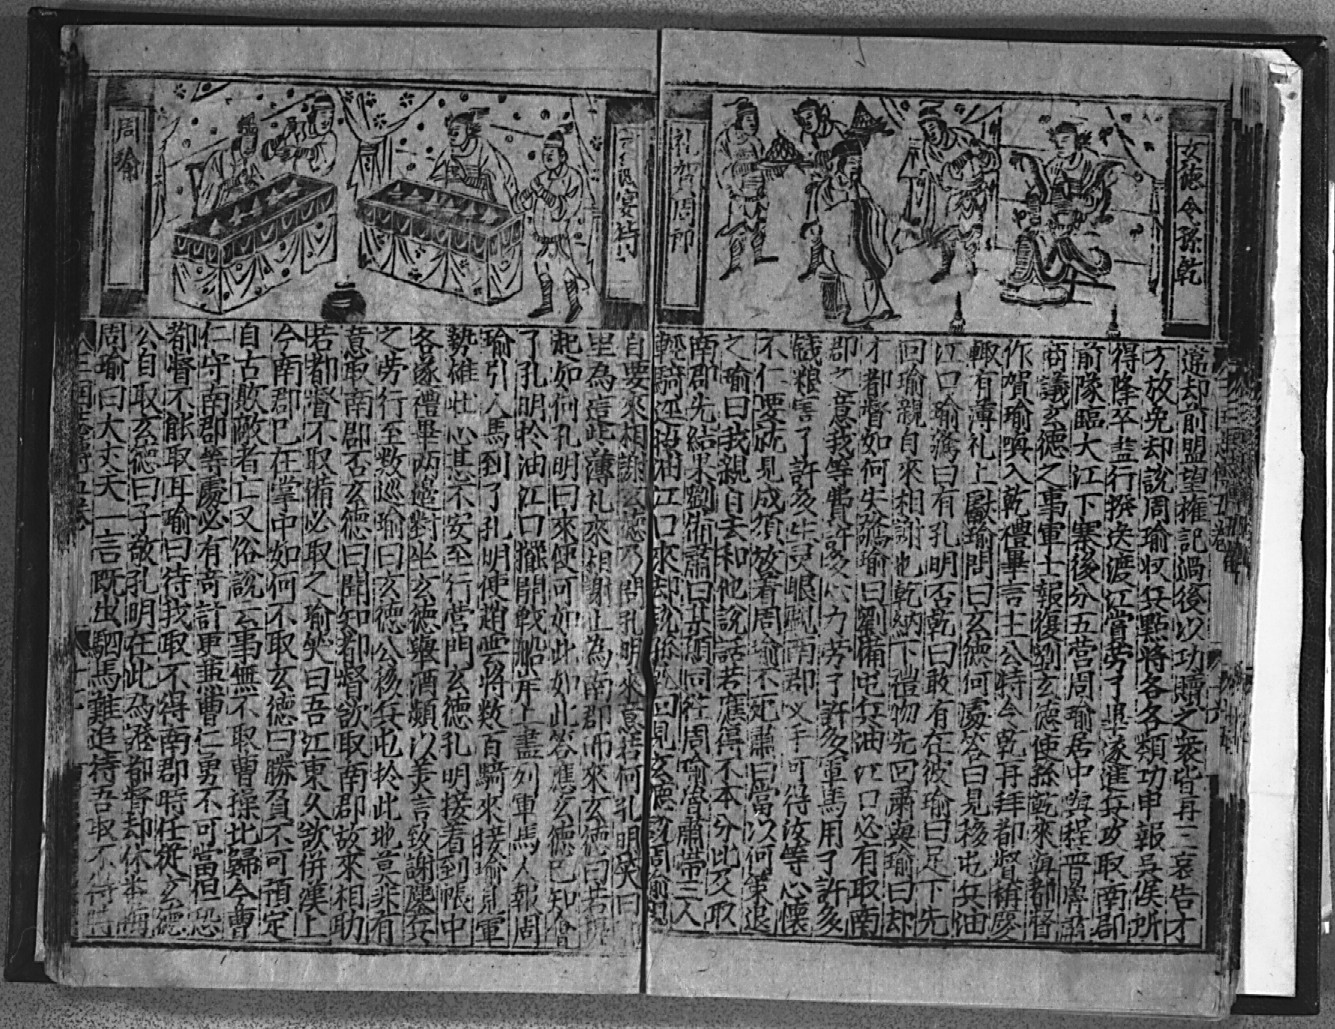 玄德令孫乾
礼賀周郎
違却前盟望權記過後以功贖之衆皆再三哀告才
方放免却說周瑜收兵點將各各類功申報吳侯所
得降卒盡行撥送渡江賞勞了畢遂進兵功取南郡
前隊臨大江下寨後分五营周瑜居中與程普魯肅
商議玄德之事軍士報復劉玄德使孫乾來與都督
作賀瑜喚入乾禮畢言主公特令乾再拜都督
輙有薄礼上獻瑜問曰玄德何處答曰見移屯兵油
江口瑜驚曰有孔明否乾曰敢有在彼瑜曰足下先
回瑜親自来相謝也乾納下禮物先回肅與瑜曰却
才都督如何失驚瑜曰劉備屯兵油江口必有取南
郡之意我等費許多心力勞了許多軍馬用了許多
錢粮害了許多生灵眼覷南郡义手可得汝等心懷
不仁要就見成須放着周瑜不死肅曰當以何策退
之瑜曰我親自去和他說話若應得不本分此及取
南郡先結果劉備肅曰某願同往周瑜魯肅帶三人
輕騎迳
周瑜
自要來相謝玄德乃問孔明來意若何孔明笑曰
里為這此薄礼來相謝止為南郡而來玄德曰若
起如何孔明曰來使可如此如此答應玄德已知會
了孔明於油江口擺開戰船岸上盡列軍馬人報周
瑜引人馬到了孔明使趙雲將数百騎來接瑜見軍
勢雄壯心甚不安至行营門玄德孔明接着到帳中
各遂禮畢两邉對坐玄德舉酒頻以美言致謝鏖兵
之勞行至数巡瑜曰玄德公移兵屯於此地莫非有
意取南郡否玄德曰聞知都督欲取南郡故來相助
若都督不取備必取之瑜笑曰吾江東久欲併漢上
今南郡已在掌中如何不取玄德曰勝負不可預定
自古欺敵者亡又俗說云事無不取曹操比歸令曹
仁守南郡等處必有奇計更兼曹仁勇不可當但恐
都督不能取耳瑜曰待我取不得南郡時任從玄德
公自取玄德曰子敬孔明在此為證都督却休
周瑜曰大丈夫一言既出駟馬難追待吾取不得時